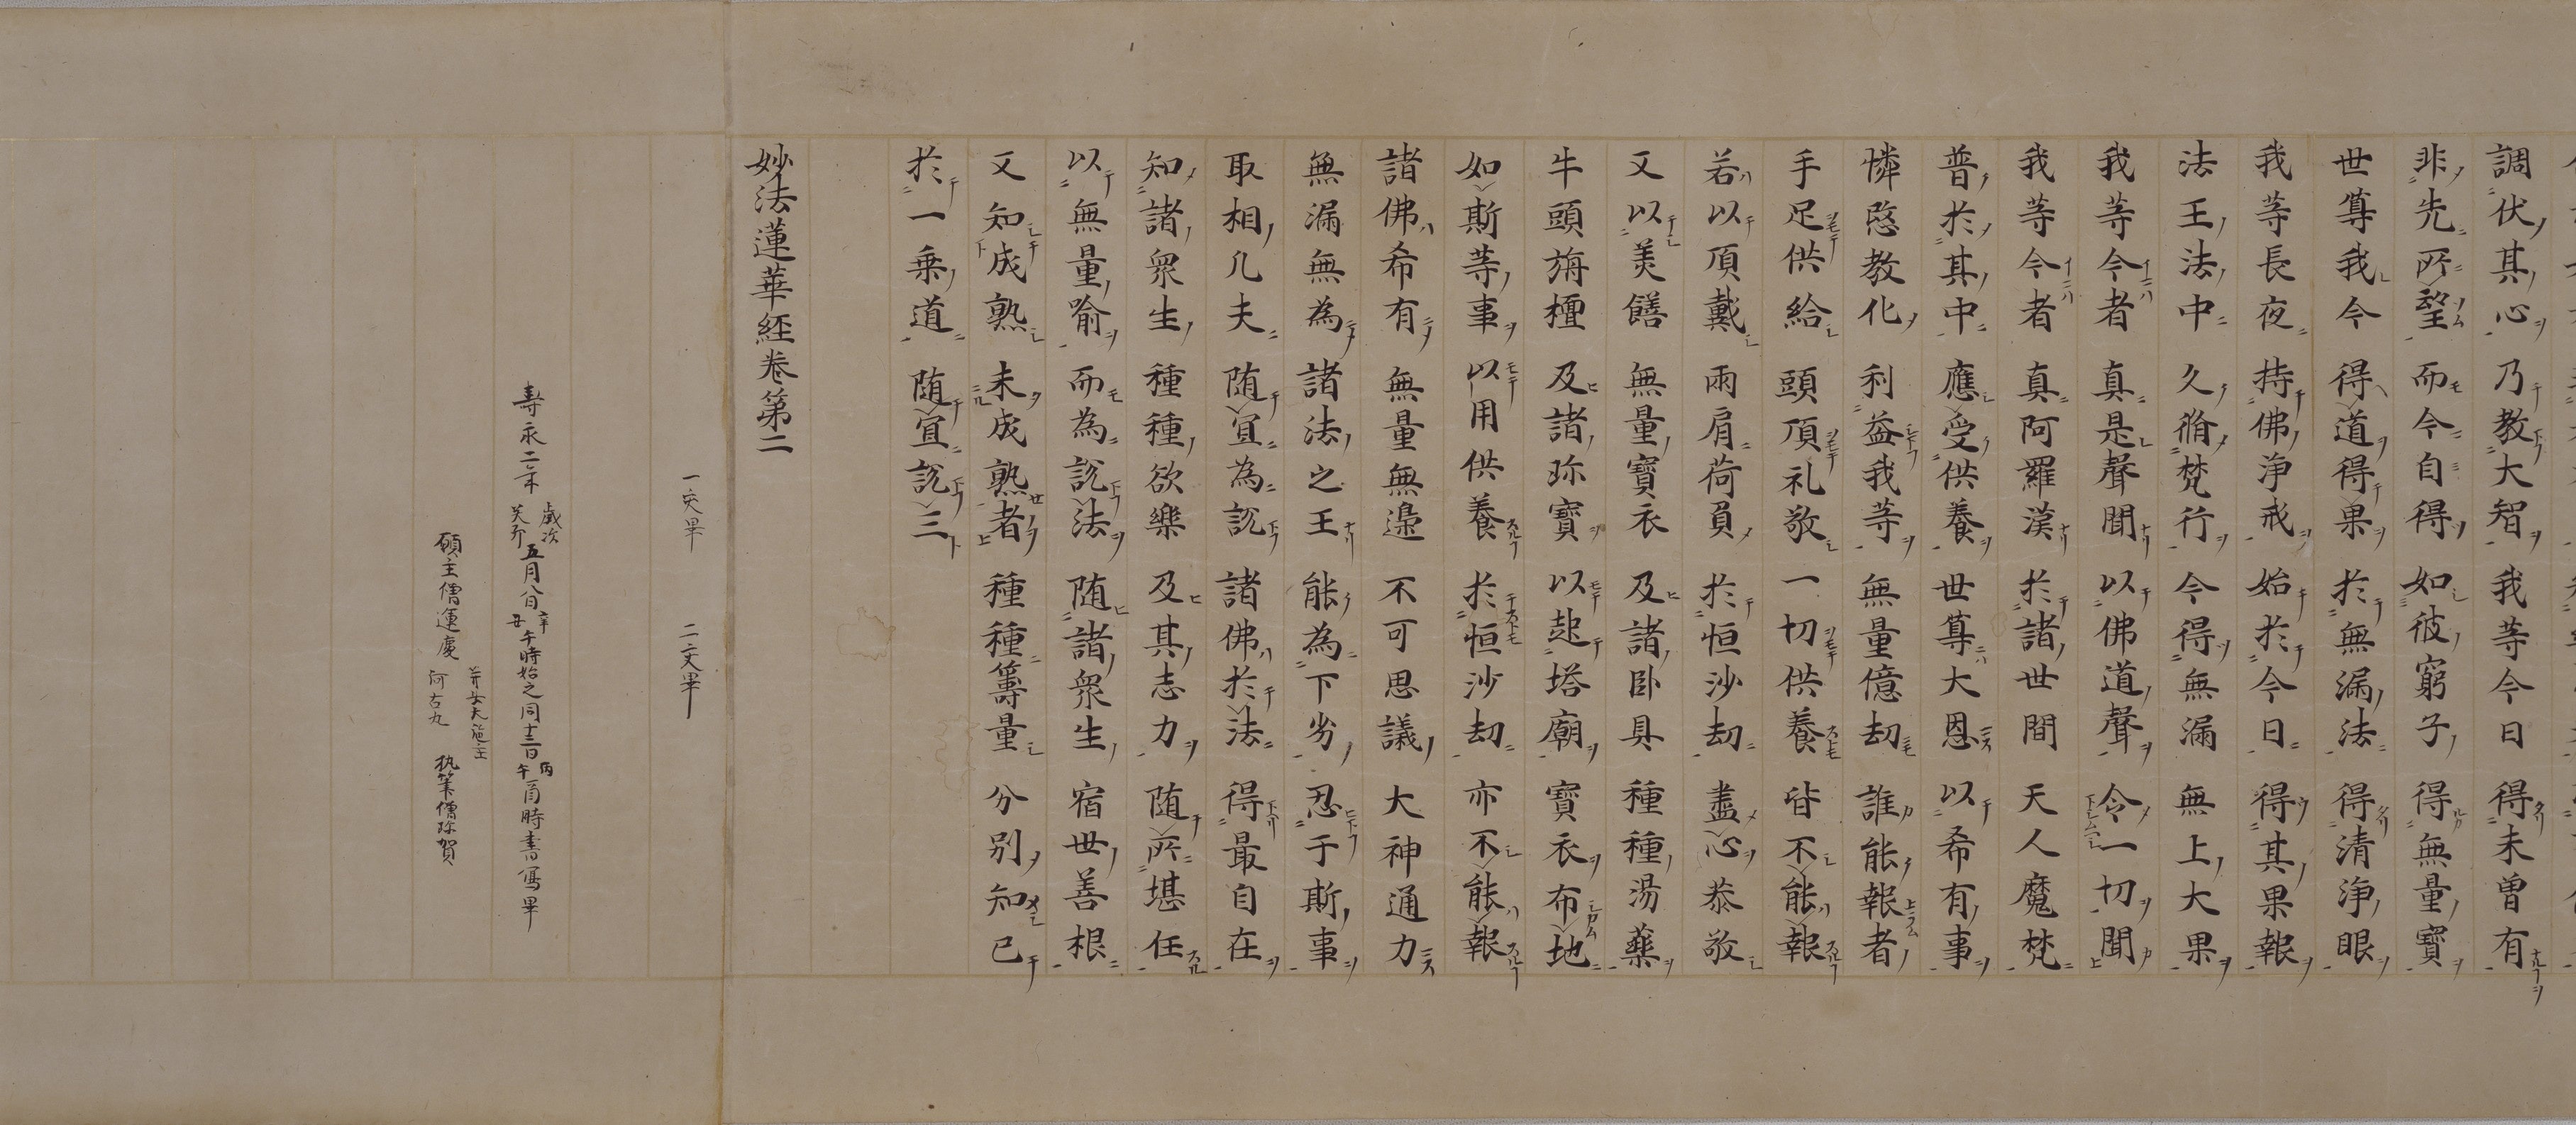 調伏其心　乃教大智　我等今日　得未曽有
非先所望　而今自得　如彼窮子　得無量寶
世尊我今　得道得果　於無漏法　得清淨眼
我等長夜　持佛淨戒　始於今日　得其果報
法王法中　久脩梵行　今得無漏　無上大果
我等今者　真是聲聞　以佛道聲　令一切聞
我等今者　真阿羅漢　於諸世間　天人魔梵
普於其中　應受供養　世尊大恩　以希有事
憐愍教化　利益我等　無量億劫　誰能報者
手足供給　頭頂礼敬　一切供養　皆不能報
若以頂戴　兩肩荷負　於恒沙劫　盡心恭敬
又以美饍　無量寶衣　及諸卧具　種種湯藥
牛頭旃檀　及諸珎寶　以起塔廟　寶衣布地
如斯等事　以用供養　於恒沙劫　亦不能報
諸佛希有　無量無邊　不可思議　大神通力
無漏無為　諸法之王　能為下劣　忍于斯事
取相凡夫　随宜為説　諸佛於法　得最自在
知諸衆生　種種欲樂　及其志力　随所堪任
以無量喻　而為説法　随諸衆生　宿世善根
又知成熟　未成熟者　種種籌量　分別知已
於一乗道　随宜説三
妙法蓮華経巻第二
一交畢　二交畢
壽永二年歳次癸卯五月八日辛丑午時始之同十三日丙午酉時書寫畢
願主僧運慶　并女大施主阿古丸　執筆僧珎賀